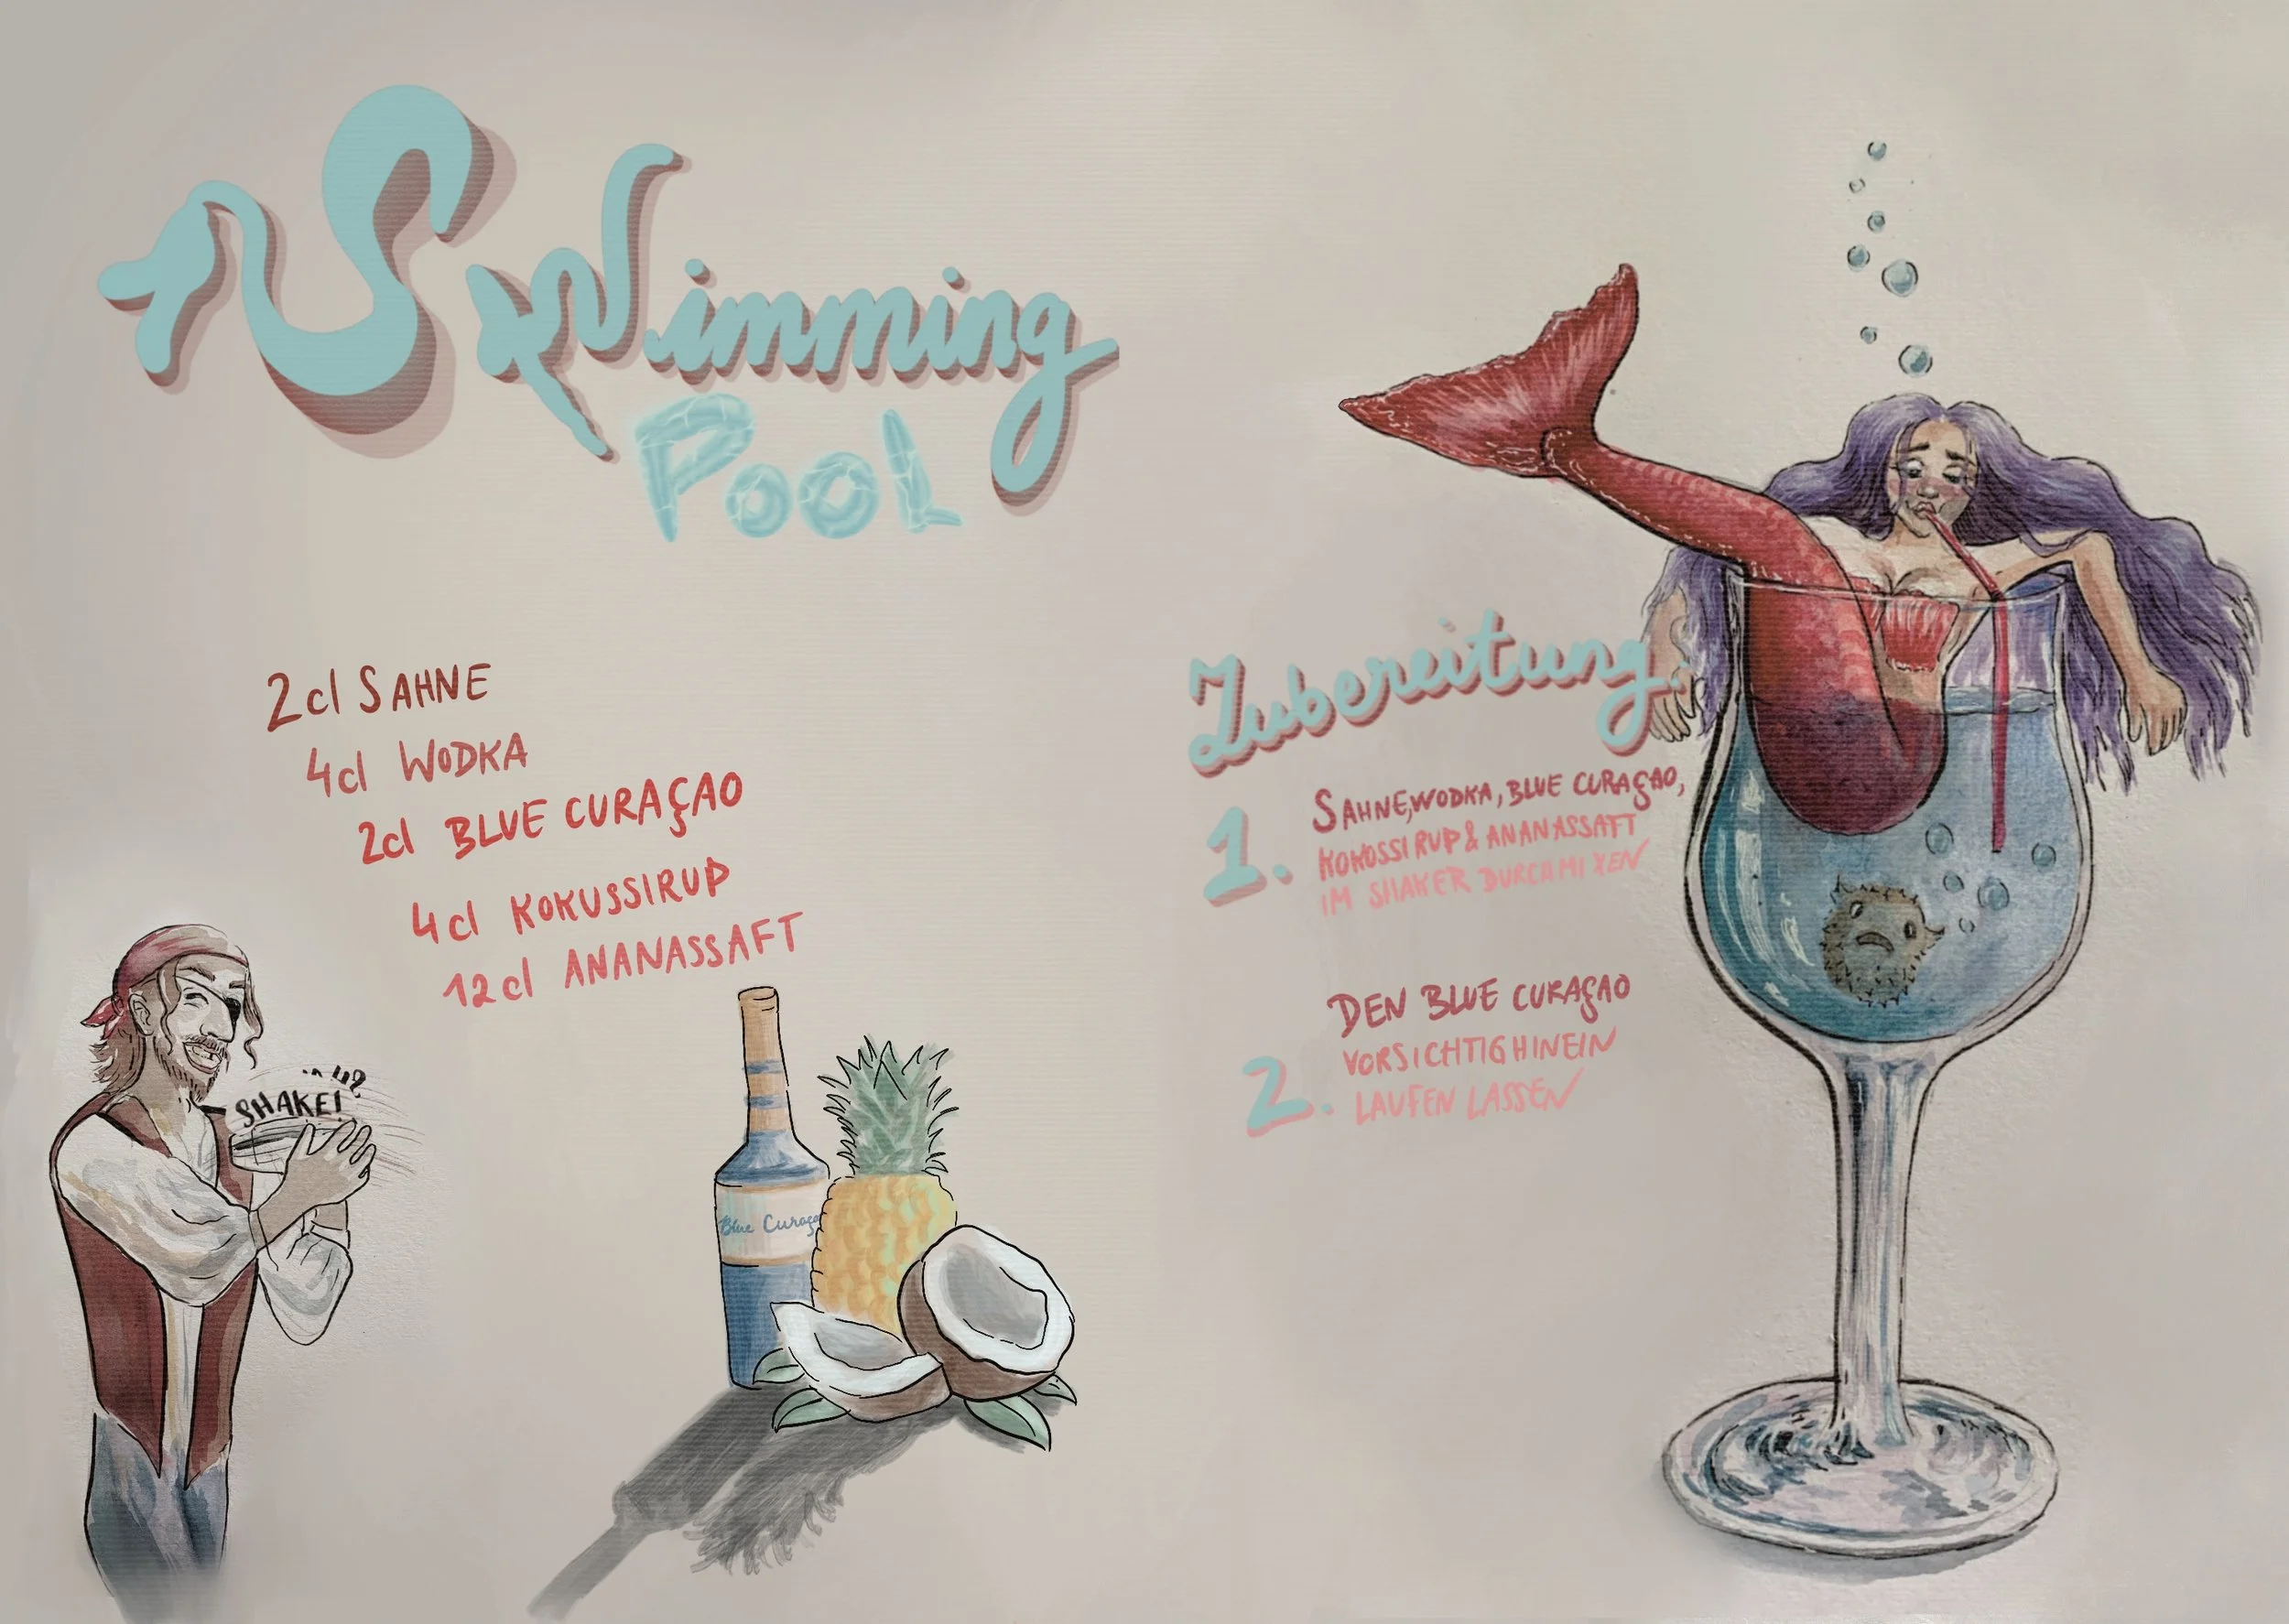 Swimming
Pool
2cl SAHNE
4cl WODKA
2cl BLUE CURAÇAO
4cl KOKUSSIRUP
12cl ANANASSAFT
SHAKE!
Blue Curaça
Zubereitung:
1. SAHNE, WODKA, BLUE CURAÇAO,
KOKOSSIRUP & ANANASSAFT
IM SHAKER DURCHMIXEN
2. DEN BLUE CURAÇAO
VORSICHTIG HINEIN
LAUFEN LASSEN